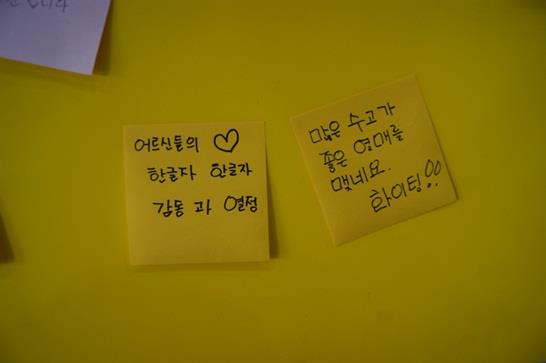 니다
어르신들의 ♡
한글자 한글자
감동 과 열정
많은 수고가
좋은 열매를
맺네요.
화이팅!!